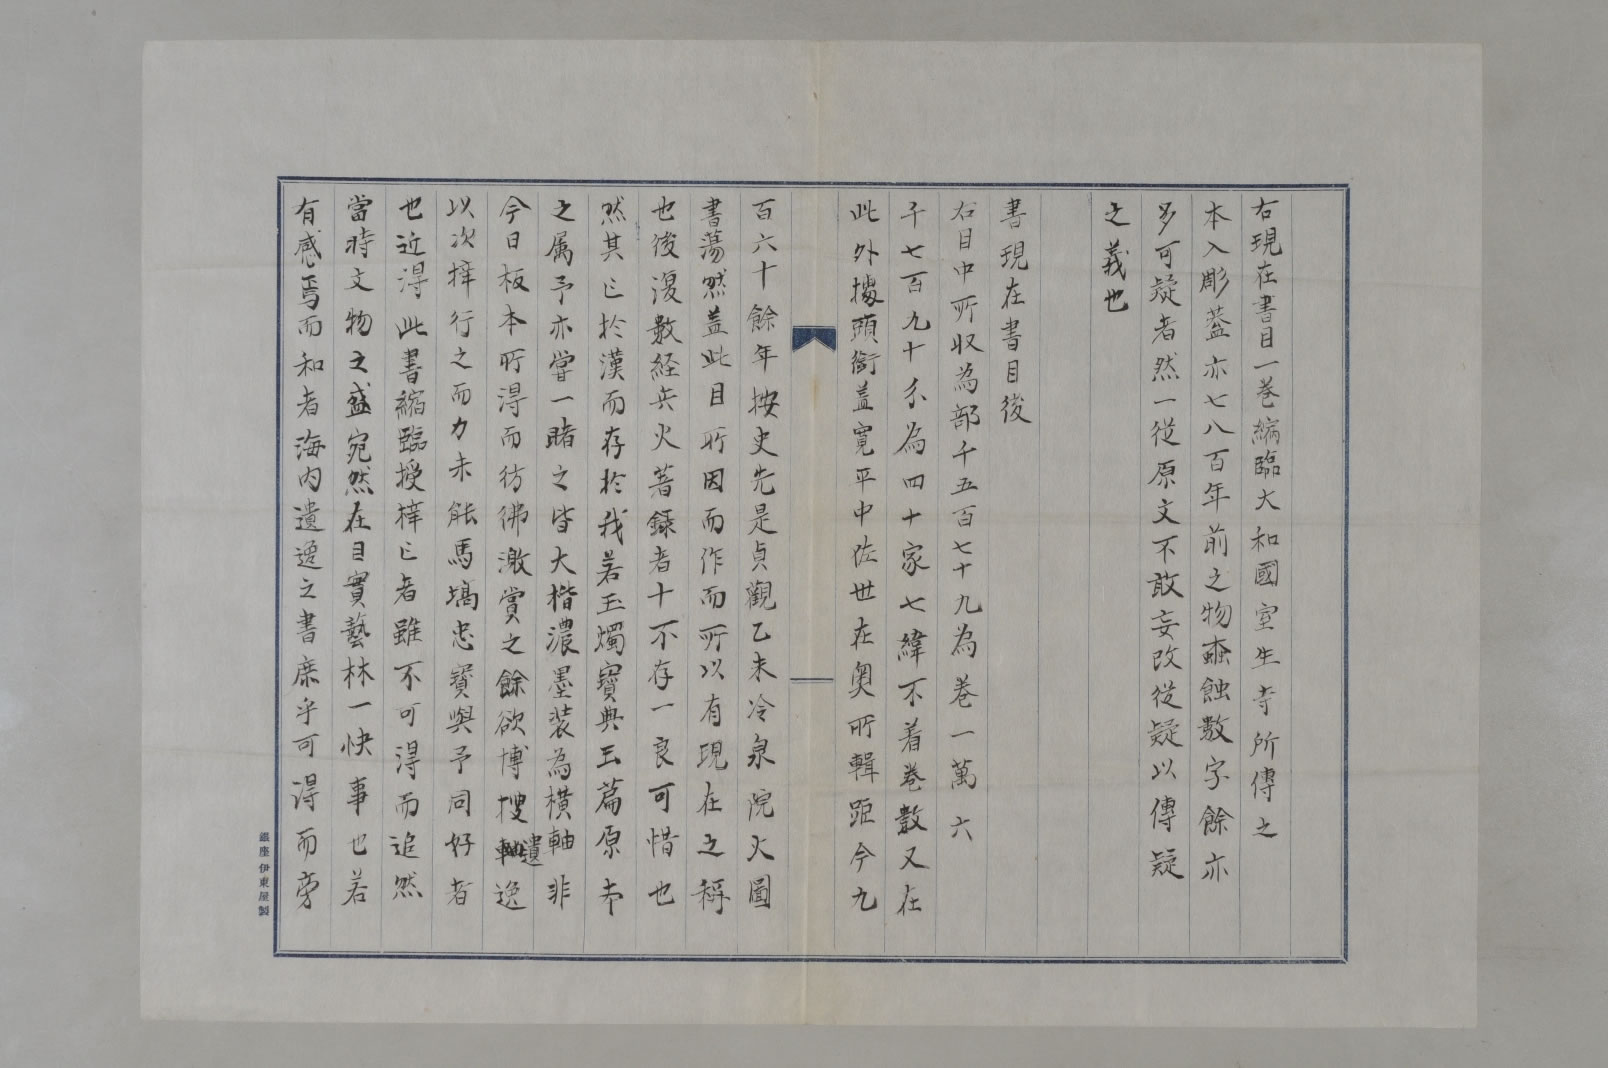 右現在書目一巻縮臨大和國室生寺所傳之
本入彫蓋亦七八百年前之物蝕蝕數字餘亦
多可疑者然一從原文不敢妄改從疑以傳疑
之義也
書現在書目後
右目中所収為部千五百七十九為巻一萬六
千七百九十介為四十家七緯不着巻數又在
此外據頭銜蓋寛平中佐世在奥所輯距今九
百六十餘年按史先是貞觀乙未冷泉院火圖
書蕩然蓋此目所因而作而所以有現在之稱
也後復數経兵火著録者十不存一良可惜也
然其亡於漢而存於我若玉燭寶典玉篇原本
之属予亦嘗一睹之皆大楷濃墨装為横軸非
今日板本所得而彷彿激賞之餘欲博捜遺逸
以次擇行之而力未能馬塙忠寶與予同好者
也近得此書縮臨授梓亡者雖不可得而追然
當時文物之盛宛然在目實藝林一快事也若
有感焉而和者海内遺逸之書庶乎可得而旁
銀座伊東屋製